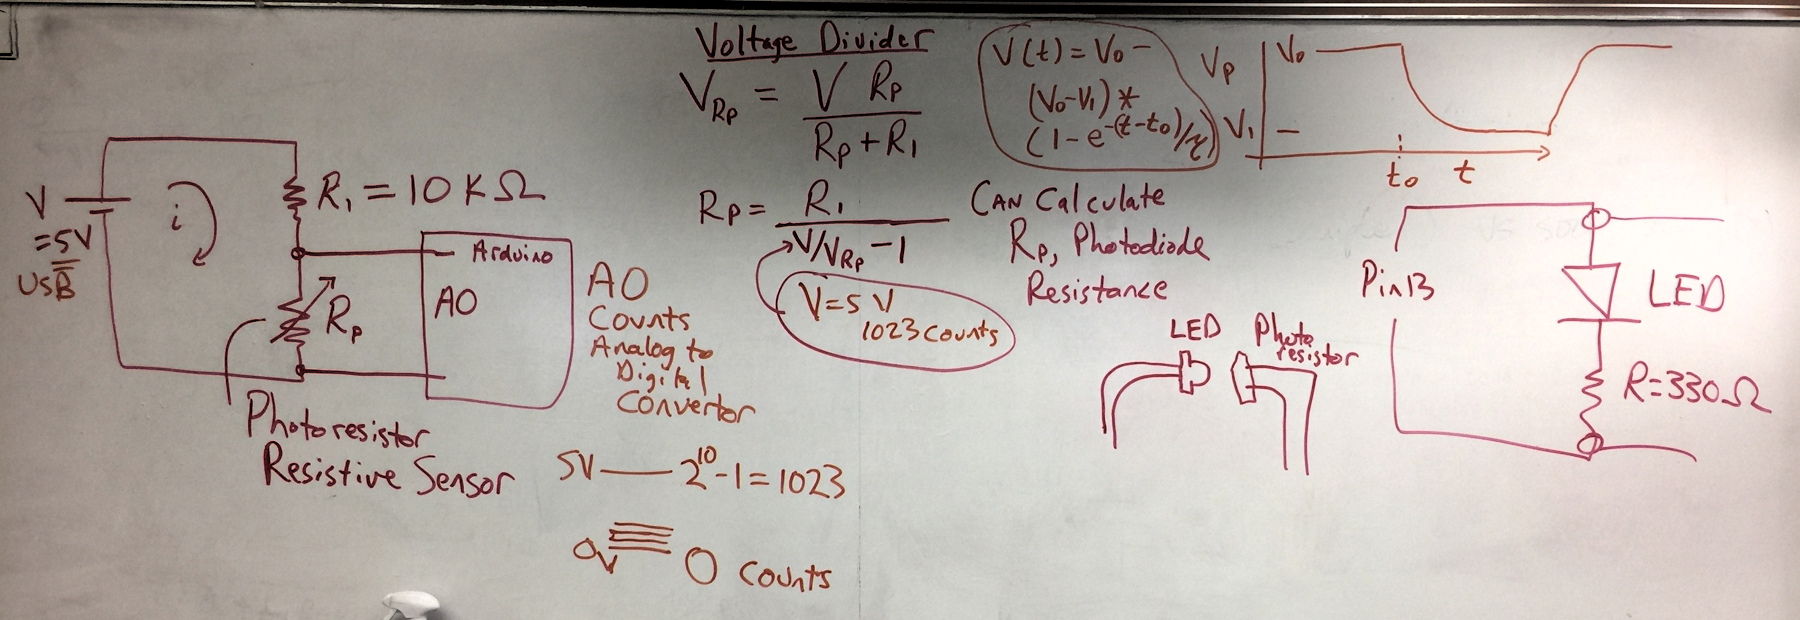 V
=5V
USB
i
R₁ = 10 KΩ
Rp
Arduino
AO
Photoresistor
Resistive Sensor
AO
Counts
Analog to
Digital
Convertor
5V — 2¹⁰-1 = 1023
0V 0 counts
Voltage Divider
V_Rp = V Rp / (Rp + R₁)
Rp = R₁ / (V/V_Rp - 1)
V=5V
1023 counts
CAN Calculate
Rp, Photodiode
Resistance
V(t) = V₀ -
(V₀-V₁) *
(1-e^-(t-t₀)/τ)
Vp
V₀
V₁
t₀ t
LED
Photo
resistor
Pin13
LED
R=330Ω